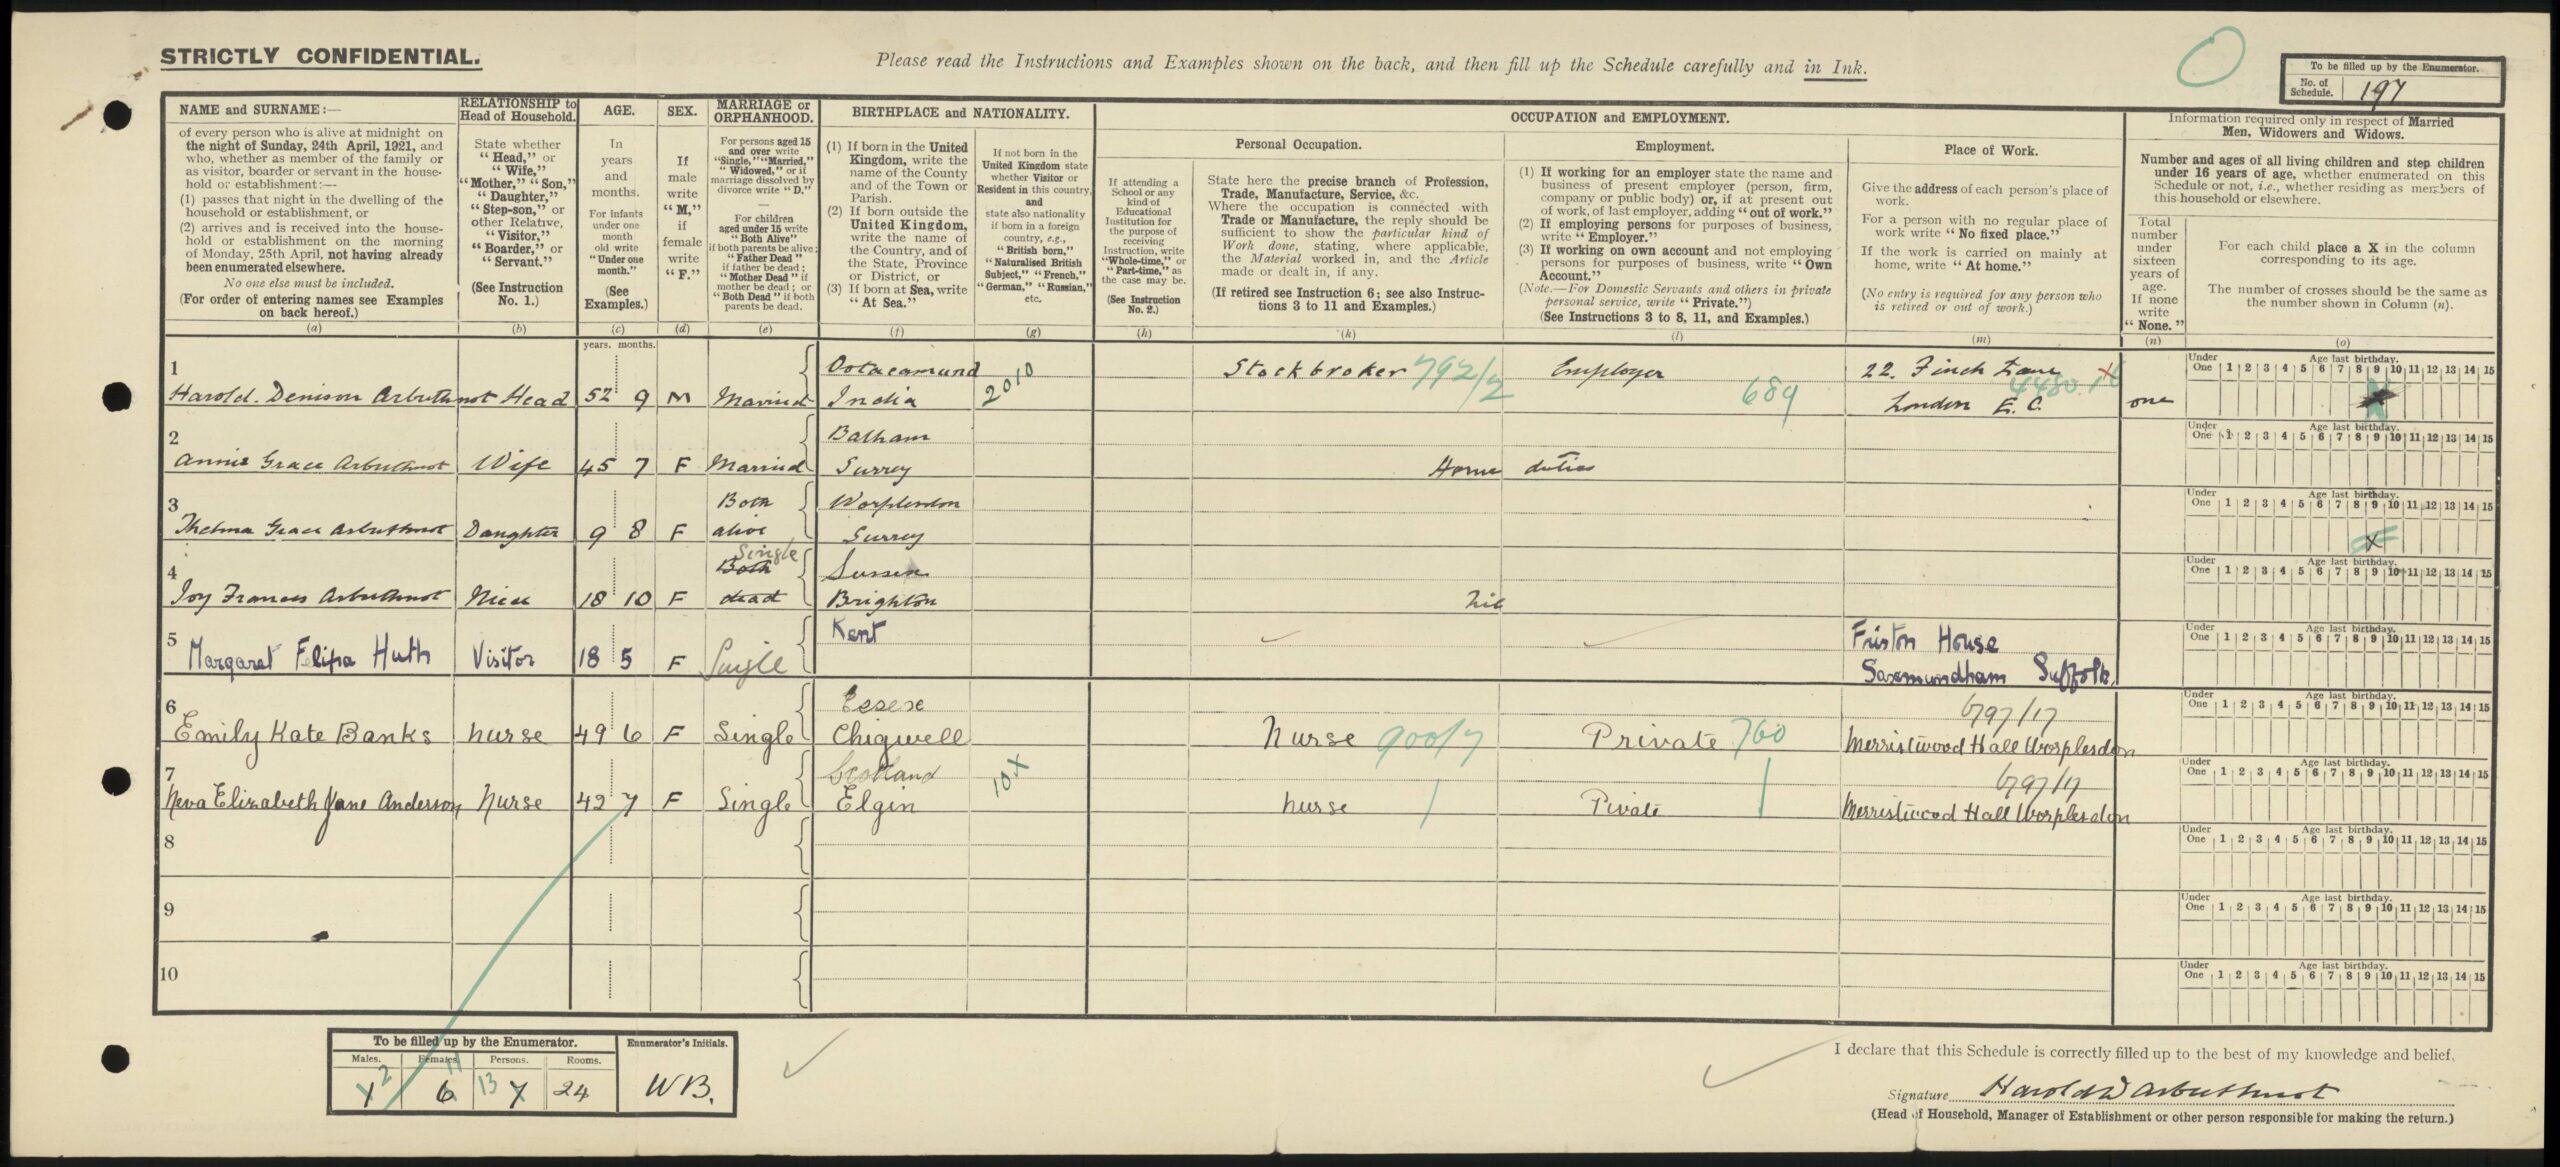 STRICTLY CONFIDENTIAL.
Please read the Instructions and Examples shown on the back, and then fill up the Schedule carefully and in Ink.
To be filled up by the Enumerator.
No. of Schedule. 197
NAME and SURNAME:—
of every person who is alive at midnight on
the night of Sunday, 24th April, 1921, and
who, whether as member of the family or
as visitor, boarder or servant in the house-
hold or establishment:—
(1) passes that night in the dwelling of the
household or establishment, or
(2) arrives and is received into the house-
hold or establishment on the morning
of Monday, 25th April, not having already
been enumerated elsewhere.
No one else must be included.
(For order of entering names see Examples
on back hereof.)
(a)
RELATIONSHIP to
Head of Household.
State whether
"Head," or
"Wife,"
"Mother," "Son,"
"Daughter,"
"Step-son," or
other Relative,
"Visitor,"
"Boarder," or
"Servant."
(See Instruction
No. 1.)
(b)
AGE.
In
years
and
months.
For infants
under one
month
old write
"Under one
month."
(See
Examples.)
(c)
years. months.
SEX.
If
male
write
"M,"
if
female
write
"F."
(d)
MARRIAGE or
ORPHANHOOD.
For persons aged 15
and over write
"Single," "Married,"
"Widowed," or if
marriage dissolved by
divorce write "D."
For children
aged under 15 write
"Both Alive"
if both parents be alive;
"Father Dead"
if father be dead;
"Mother Dead" if
mother be dead; or
"Both Dead" if both
parents be dead.
(e)
BIRTHPLACE and NATIONALITY.
(1) If born in the United
Kingdom, write the
name of the County
and of the Town or
Parish.
(2) If born outside the
United Kingdom,
write the name of
the Country, and of
the State, Province
or District, or
(3) If born at Sea, write
"At Sea."
(f)
If not born in the
United Kingdom state
whether Visitor or
Resident in this country,
and
state also nationality
if born in a foreign
country, e.g.,
"British born,"
"Naturalised British
Subject," "French,"
"German," "Russian,"
etc.
(g)
OCCUPATION and EMPLOYMENT.
If attending a
School or any
kind of
Educational
Institution for
the purpose of
receiving
Instruction, write
"Whole-time," or
"Part-time," as
the case may be.
(See Instruction
No. 2.)
(h)
Personal Occupation.
State here the precise branch of Profession,
Trade, Manufacture, Service, &c.
Where the occupation is connected with
Trade or Manufacture, the reply should be
sufficient to show the particular kind of
Work done, stating, where applicable,
the Material worked in, and the Article
made or dealt in, if any.
(If retired see Instruction 6; see also Instruc-
tions 3 to 11 and Examples.)
(k)
Employment.
(1) If working for an employer state the name and
business of present employer (person, firm,
company or public body) or, if at present out
of work, of last employer, adding "out of work."
(2) If employing persons for purposes of business,
write "Employer."
(3) If working on own account and not employing
persons for purposes of business, write "Own
Account."
(Note.—For Domestic Servants and others in private
personal service, write "Private.")
(See Instructions 3 to 8, 11, and Examples.)
(l)
Place of Work.
Give the address of each person's place of
work.
For a person with no regular place of
work write "No fixed place."
If the work is carried on mainly at
home, write "At home."
(No entry is required for any person who
is retired or out of work.)
(m)
Information required only in respect of Married
Men, Widowers and Widows.
Number and ages of all living children and step children
under 16 years of age, whether enumerated on this
Schedule or not, i.e., whether residing as members of
this household or elsewhere.
Total
number
under
sixteen
years of
age.
If none
write
"None."
(n)
For each child place a X in the column
corresponding to its age.
The number of crosses should be the same as
the number shown in Column (n).
(o)
1 Ootacamund 2010 Stockbroker 792/2 Employer 689 22. Finch Lane
Harold Denison Arbuthnot Head 52 9 M Married India London E.C. one
Under One Age last birthday. 1 2 3 4 5 6 7 8 9 10 11 12 13 14 15
2 Balham
Annie Grace Arbuthnot Wife 45 7 F Married Surrey Home duties
Under One Age last birthday. 1 2 3 4 5 6 7 8 9 10 11 12 13 14 15
3 Both Worplesdon
Thelma Grace Arbuthnot Daughter 9 8 F alive Surrey
Under One Age last birthday. 1 2 3 4 5 6 7 8 9 10 11 12 13 14 15
x
Single
4 Both Sussex
Joy Frances Arbuthnot Niece 18 10 F dead Brighton nil
Under One Age last birthday. 1 2 3 4 5 6 7 8 9 10 11 12 13 14 15
5 Kent Friston House
Margaret Felipa Huth Visitor 18 5 F Single Saxmundham Suffolk
Under One Age last birthday. 1 2 3 4 5 6 7 8 9 10 11 12 13 14 15
6 Essex 797/17
Emily Kate Banks nurse 49 6 F Single Chigwell Nurse 900/7 Private 760 Merristwood Hall Worplesdon
Under One Age last birthday. 1 2 3 4 5 6 7 8 9 10 11 12 13 14 15
7 Scotland 10X 797/17
Neva Elizabeth Jane Anderson Nurse 42 7 F Single Elgin nurse Pivate Merristwood Hall Worplesdon
Under One Age last birthday. 1 2 3 4 5 6 7 8 9 10 11 12 13 14 15
8
Under One Age last birthday. 1 2 3 4 5 6 7 8 9 10 11 12 13 14 15
9
Under One Age last birthday. 1 2 3 4 5 6 7 8 9 10 11 12 13 14 15
10
Under One Age last birthday. 1 2 3 4 5 6 7 8 9 10 11 12 13 14 15
To be filled up by the Enumerator. Enumerator's Initials.
Males. Females. Persons. Rooms.
1 2 6 11 13 7 24 WB.
I declare that this Schedule is correctly filled up to the best of my knowledge and belief.
Signature Harold D Arbuthnot
(Head of Household, Manager of Establishment or other person responsible for making the return.)